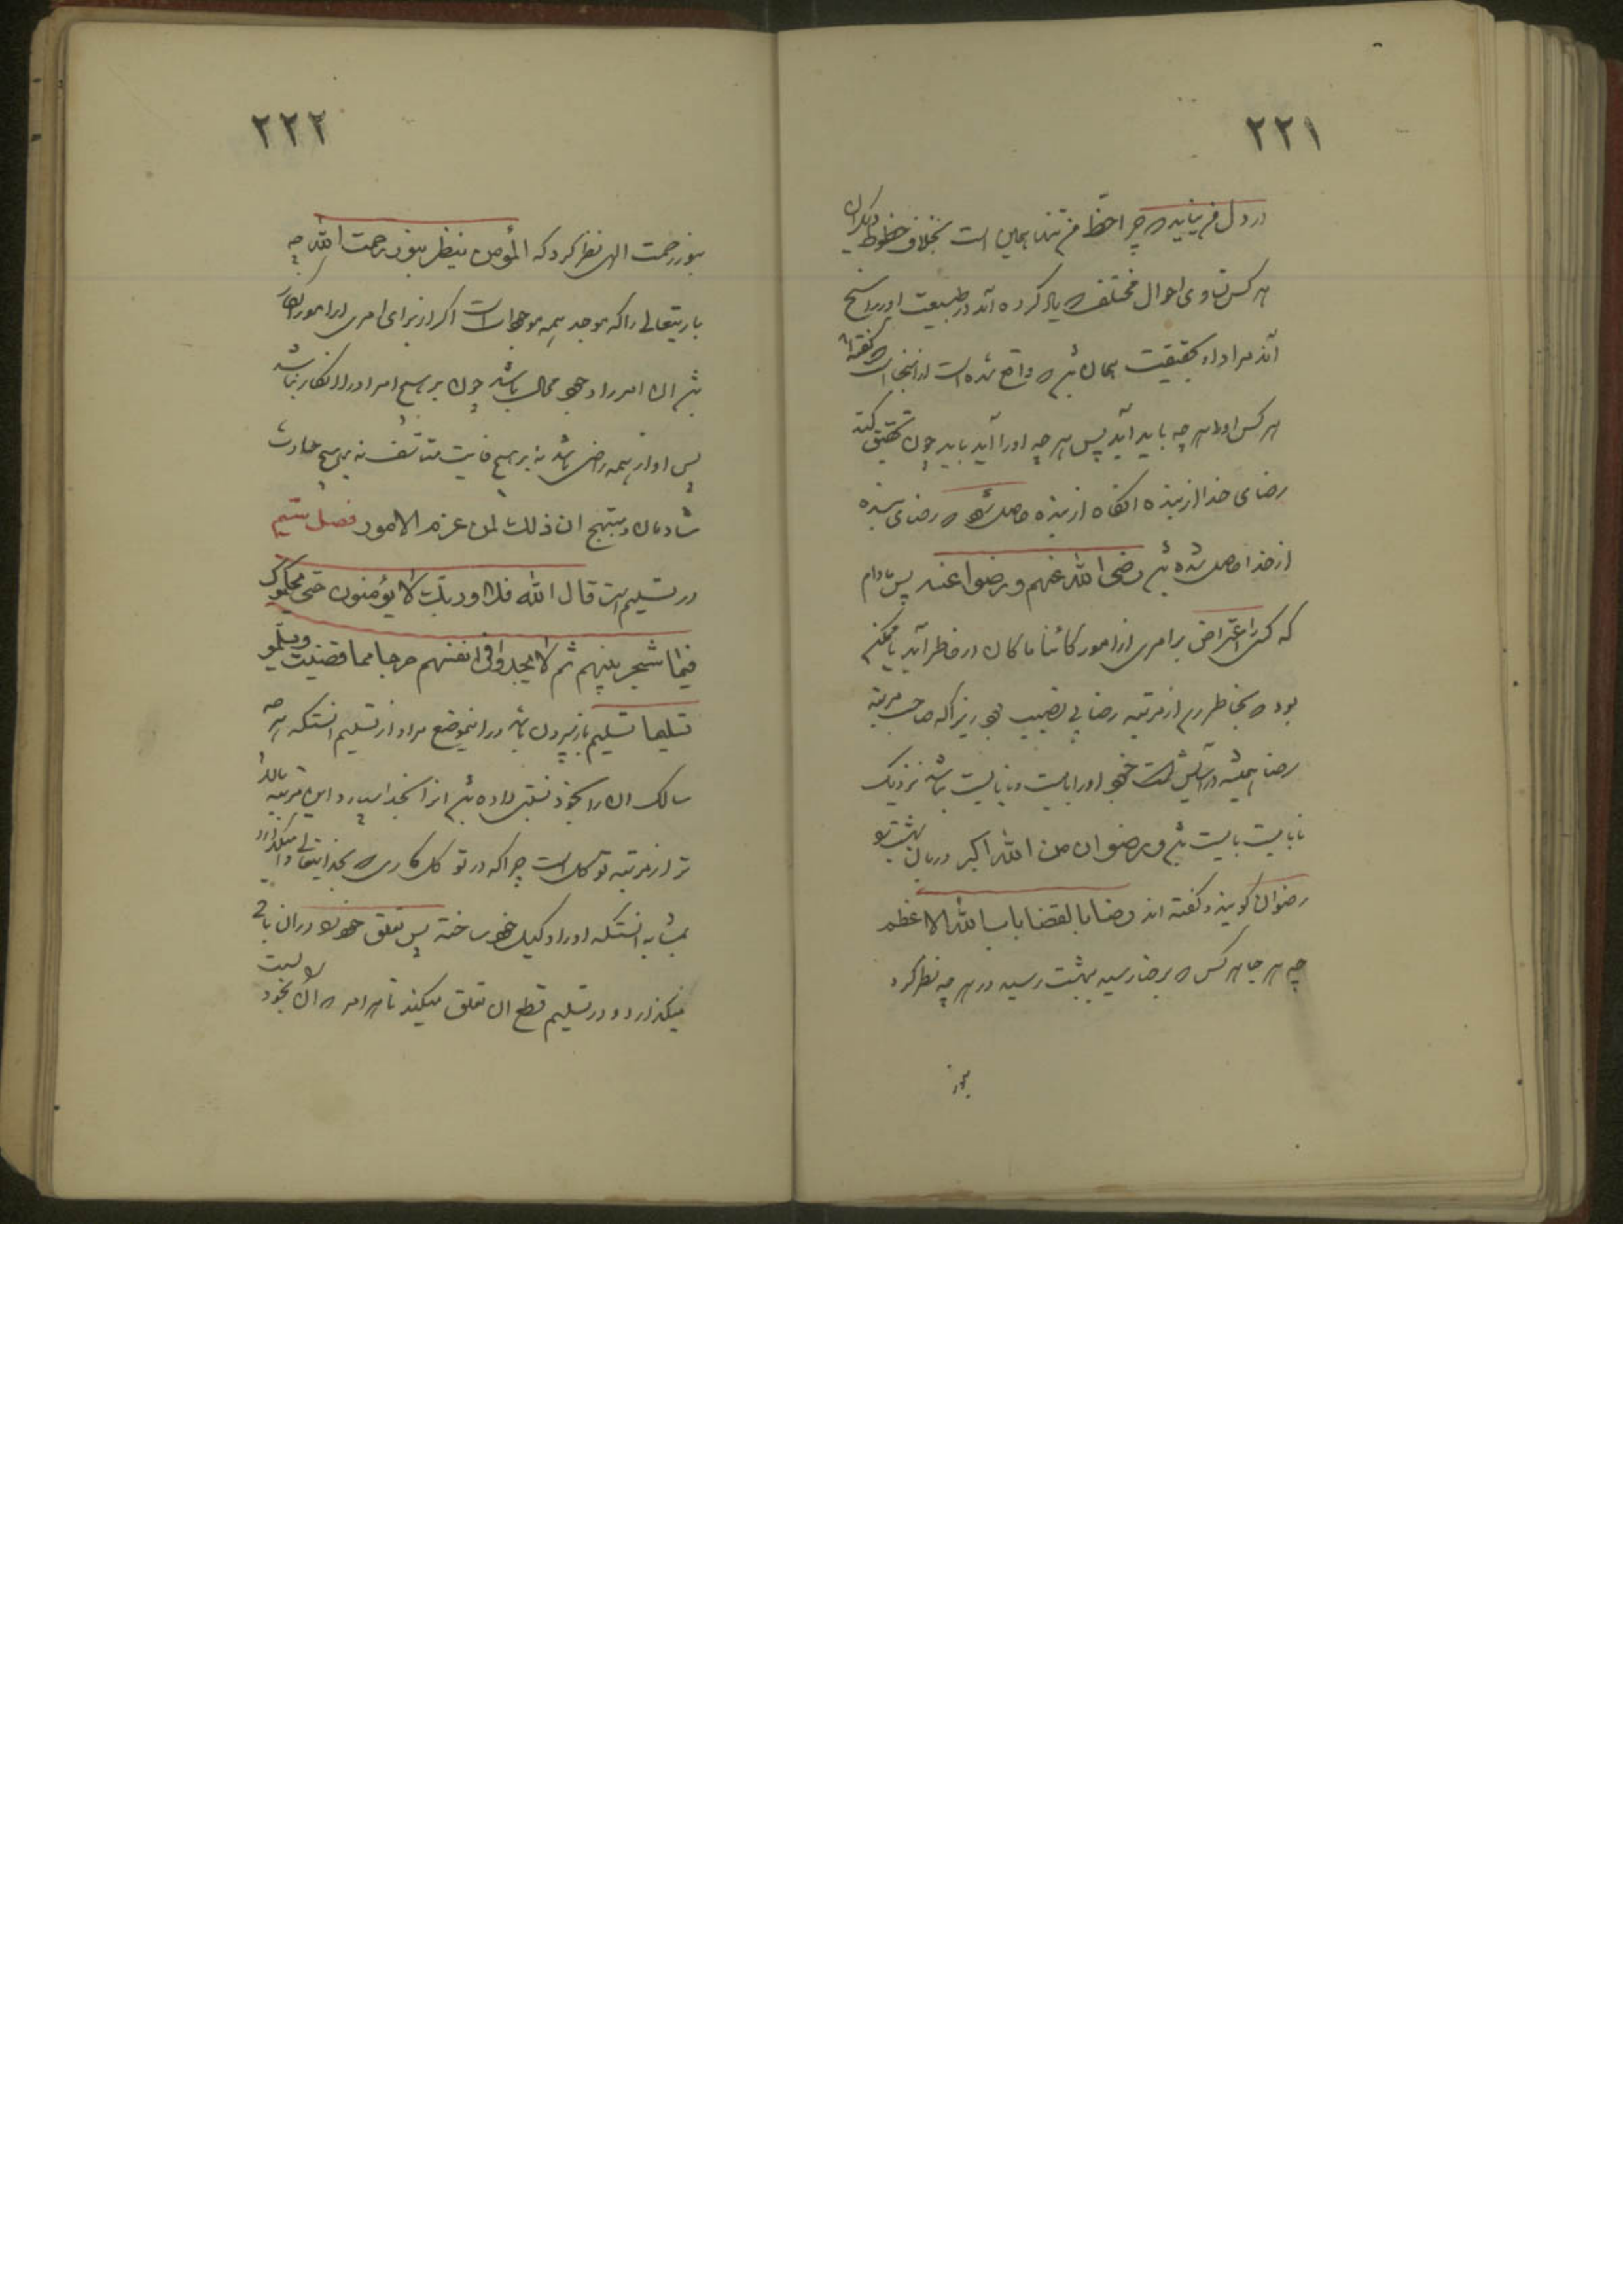 ۲۲۱
در دل من نیاید که چرا حظ من تنها همین است بخلاف حظوظ دیگران
هر کس تساوی احوال مختلفه که یاد کرده آمد در طبیعت او راسخ
آمد مراد او بحقیقت همان باشد که واقع شده است از اینجا است که گفته‌اند
هر کس او را هر چه باید آید پس هر چه او را آید باید چون تحقیق کنند
رضای خدا از بنده آنگاه از بنده حاصل شود که رضای بنده
از خدا حاصل شده باشد رضی الله عنهم و رضوا عنه پس مادام
که کسی را اعتراض بر امری از امور کائنا ما کان در خاطر آید یا ممکن
بود که بخاطر رم از مرتبه رضا بی نصیب بود زیرا که صاحب مرتبه
رضا همیشه در آسایش است چه او را بایست و نبایست نباشد نزدیک
نبایست بایست باشد و رضوان من الله اکبر دربان بهشت را
رضوان گویند و گفته اند رضا بالقضا باب الله الاعظم
چه هر جا هر کس که برضا رسید بهشت رسید در هر چه نظر کرد
بنور
۲۲۲
بنور رحمت الهی نظر کرد که المؤمن ینظر بنور رحمت الله چه
باریتعالی را که موجد همه موجودات است اگر از برای امری از امور انکار
باشد آن امر را وجود محال باشد چون بر هیچ امر او را انکار نباشد
پس او از همه راضی باشد نه بر هیچ فایت متاسف نه بر هیچ حادث
شادمان و مبتهج ان ذلک لمن عزم الامور فصل ششم
در تسلیم است قال الله فلا و ربک لا یؤمنون حتی یحکموک
فیما شجر بینهم ثم لا یجدوا فی انفسهم حرجا مما قضیت و یسلموا
تسلیما تسلیم بازسپردن باشد و در این موضع مراد از تسلیم آنستکه هر چه
سالک آن را بخود نسبتی داده باشد آنرا بخدا سپارد و این مرتبه بالا
تر از مرتبه توکل است چرا که در توکل کاری که بخدایتعالی وا میگذارد
بمثابه آنستکه او را وکیل خود ساخته پس تعلق خود را در آن باقی
میگذارد و در تسلیم قطع آن تعلق میکند تا هر امر که آن را بخود نسبت